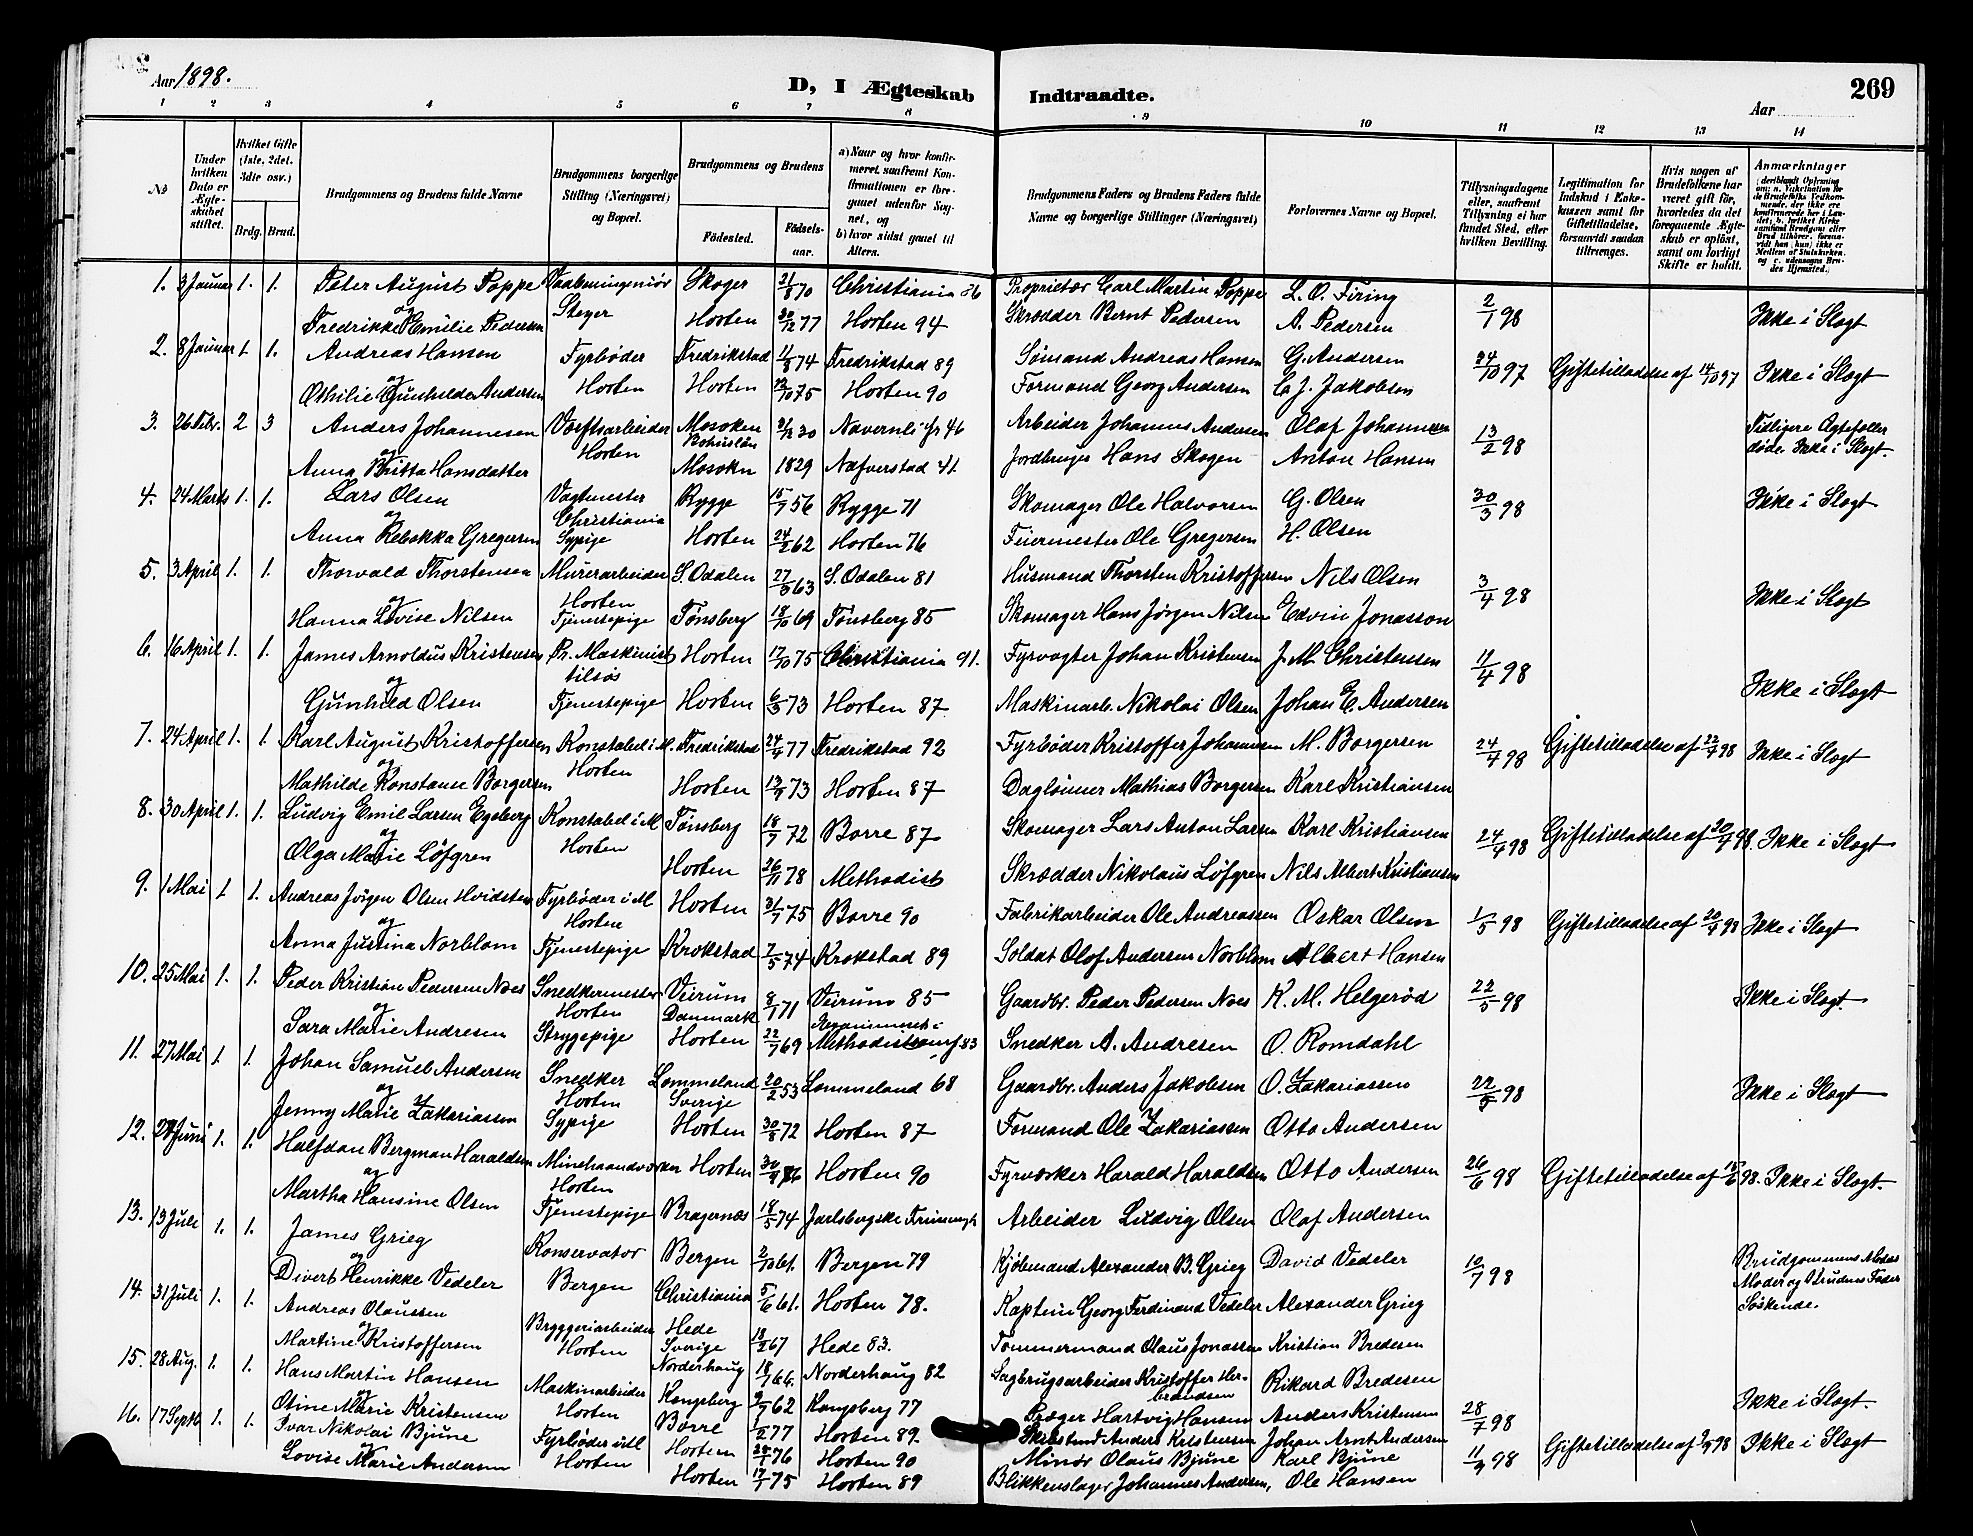 Aar 1898.
D, I Ægteskab Indtraadte.
Aar
269
1 2 3 4 5 6 7 8 9 10 11 12 13 14
No
Under hvilken Dato er Ægteskabet stiftet.
Hvilket Gifte (1ste, 2det, 3die osv.)
Brdg. Brud.
Brudgommens og Brudens fulde Navne
Brudgommens borgerlige Stilling (Næringsvei) og Bopæl.
Brudgommens og Brudens
Fødested. Fødselsaar.
a) Naar og hvor konfirmeret, saafremt Konfirmationen er foregaaet udenfor Sognet, og
b) hvor sidst gaaet til Alters.
Brudgommens Faders og Brudens Faders fulde Navne og borgerlige Stillinger (Næringsvei)
Forlovernes Navne og Bopæl.
Tillysningsdagene eller, saafremt Tillysning ei har fundet Sted, efter hvilken Bevilling.
Legitimation for Indskud i Enkekassen samt for Giftetilladelse, forsaavidt saadan tiltrænges.
Hvis nogen af Brudefolkene har været gift før, hvorledes da det foregaaende Ægteskab er opløst, samt om lovligt Skifte er holdt.
Anmærkninger
1. 3 Januar 1. 1. Peter August Poppe Vaabeningeniør Skoger 21/8 70 Christiania 86 Proprietær Carl Martin Poppe L. O. Firing 2/1 98 Ikke i Slægt
og Steyer
Fredrikke Emilie Pedersen Horten 30/12 77 Horten 94 Skrædder Bernt Pedersen A. Pedersen
2. 8 Januar 1 1. Andreas Hansen Fyrbøder Fredrikstad 11/8 74 Fredrikstad 89 Sømand Andreas Hansen G. Andersen 24/10 97 Giftetilladelse af 14/10 97 Ikke i Slægt
og
Othilie Gunhilde Andersen Horten Horten 75 Horten 90 Formand Georg Andersen C. J. Jakobsen
3. 26 Febr. 2 3 Anders Johannesen Værftsarbeider Mosoken Bohuslän 30 46 Arbeider Johannes Andersen Olaf Johannesen 13/2 98 Tidligere Ægtefæller døde. Ikke i Slægt.
og Horten
Anna Britta Hansdatter 1829 Næfverstad 41. Jordbruger Hans Skogen Anton Hansen
4. 24 Marts 1. 1. Lars Olsen Vagtmester Christiania Rygge 15/7 56 Rygge 71 Skomager Ole Halvorsen G. Olsen 30/3 98 Ikke i Slægt
og
Anna Rebekka Gregersen Sypige Horten 24/2 62 Horten 76 Feiermester Ole Gregersen H. Olsen
5. 3 April 1. 1. Thorvald Thorstensen Murerarbeider S. Odalen 27/3 63 S. Odalen 81 Husmand Thorsten Kristoffersen Nils Olsen 3/4 98 Ikke i Slægt
og Horten
Hanna Lovise Nilsen Tjenestepige Tønsberg 18/10 69 Tønsberg 85 Skomager Hans Jørgen Nilsen Edvin Jonasson
6. 16 April 1. 1. James Arnoldus Kristensen Pr. Maskinist tilsøs Horten 17/10 75 Christiania 91. Fyrvogter Johan Kristensen J. M. Christensen 11/4 98 Ikke i Slægt
og
Gunhild Olsen Tjenestepige Horten 6/3 73 Horten 87 Maskinarb. Nikolai Olsen Johan E. Andersen
7. 24 April 1. 1. Karl August Kristoffersen Konstabel i M. Fredrikstad 24/4 77 Fredrikstad 92 Fyrbøder Kristoffer Johannesen M. Borgersen 24/4 98 Giftetilladelse af 22/4 98 Ikke i Slægt
og Horten
Mathilde Konstanse Borgersen Horten 13/9 73 Horten 87 Daglønner Mathias Borgersen Karl Kristiansen
8. 30 April 1. 1. Ludvig Emil Larsen Egeberg Konstabel i M Tønsberg 18/7 72 Borre 87 Skomager Lars Anton Larsen Karl Kristiansen 24/4 98 Giftetilladelse af 20/4 98. Ikke i Slægt
og Horten
Olga Marie Löfgren Horten 26/11 78 Methodist Skrædder Nikolaus Löfgren Nils Albert Kristiansen
9. 1 Mai 1 1. Andreas Jørgen Olsen Hvidsten Fyrbøder i M Horten 31/7 75 Borre 90 Fabrikarbeider Ole Andreassen Oskar Olsen 1/5 98 Giftetilladelse af 20/4 98 Ikke i Slægt
og Horten
Anna Justina Norblom Tjenestepige Krokstad 7/5 74 Krokstad 89 Soldat Olof Andersen Norblom Albert Hansen
10. 25 Mai 1. 1. Peder Kristian Pedersen Noes Snedkermester Veirum 8/1 71 Veirum 85 Gaardbr. Peder Pedersen Noes K. M. Helgerød 22/5 98 Ikke i Slægt.
og Horten Danmark
Sara Marie Andresen Strygepige Horten 22/7 69 Methodistsamf. 83 Snedker A. Andresen O. Romdahl
11. 27 Mai 1. 1. Johan Samuel Andersen Snedker Lommeland 20/2 53 Lommeland 68 Gaardbr. Anders Jakobsen O. Zakariassen 22/5 98 Ikke i Slægt
og Horten Sverige
Jenny Marie Zakariassen Sypige Horten 30/8 72 Horten 87 Formand Ole Zakariassen Otto Andersen
12. Juni 1. 1. Halfdan Bergman Haraldsen Minehaandværker Horten Horten 90 Fyrværker Harald Haraldsen Otto Andersen 26/6 98 Giftetilladelse af 15/6 98. Ikke i Slægt.
og Horten
Martha Hansine Olsen Tjenestepige Bragernæs 18/5 74 Jarlsbergske Frimenigh. Arbeider Ludvig Olsen Olaf Andersen
13. 13 Juli 1. 1. James Grieg Konservator Bergen 2/10 61. Bergen 79 Kjøbmand Alexander B. Grieg David Vedeler 10/7 98 Brudgommens Moders Moder og Brudens Fader Søskende.
og
Divert Henrikke Vedeler Bergen Christiania 5/6 61. Horten 78. Kaptein Georg Ferdinand Vedeler Alexander Grieg
14. 31 Juli 1. 1. Andreas Olaussen Bryggeriarbeider Hede Sverige 18/2 67 Hede 83. Tømmermand Olaus Jonassen Kristian Bredesen
og Horten
Martine Kristoffersen Norderhaug 18/7 66. Norderhaug 82 Sagbrugsarbeider Kristoffer Herbrandsen Rikard Bredesen
15. 28 Aug. 1. 1. Hans Martin Hansen Maskinarbeider Kongsberg 9/7 62 Kongsberg 77 Præger Hartvig Hansen Anders Kristensen 28/7 98 Ikke i Slægt.
og Horten
Otine Marie Kristensen Borre 1/2 77 Horten 89. Anders Kristensen Johan Arnt Andersen
16. 17 Septb 1. 1. Ivar Nikolai Bjune Fyrbøder i M Horten 76 Horten 90 Minør Olaus Bjune Karl Bjune 11/9 98 Giftetilladelse af 98 Ikke i Slægt
og Horten
Lovise Marie Andersen Horten 17/1 75 Horten 89 Blikkenslager Johannes Andersen, Ole Hansen